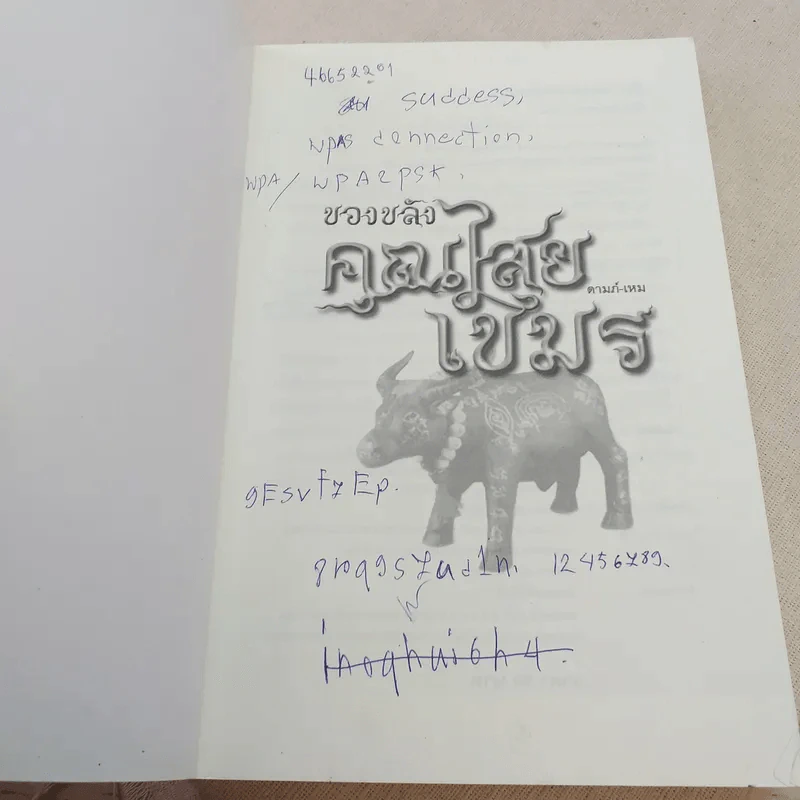 46652201
suddess,
WPAS connection,
WPA / WPA2PSK,
ของขลัง
คุณไสย
ดามภ์-เหม
เขมร
gEsvf7Ep.
12456789.